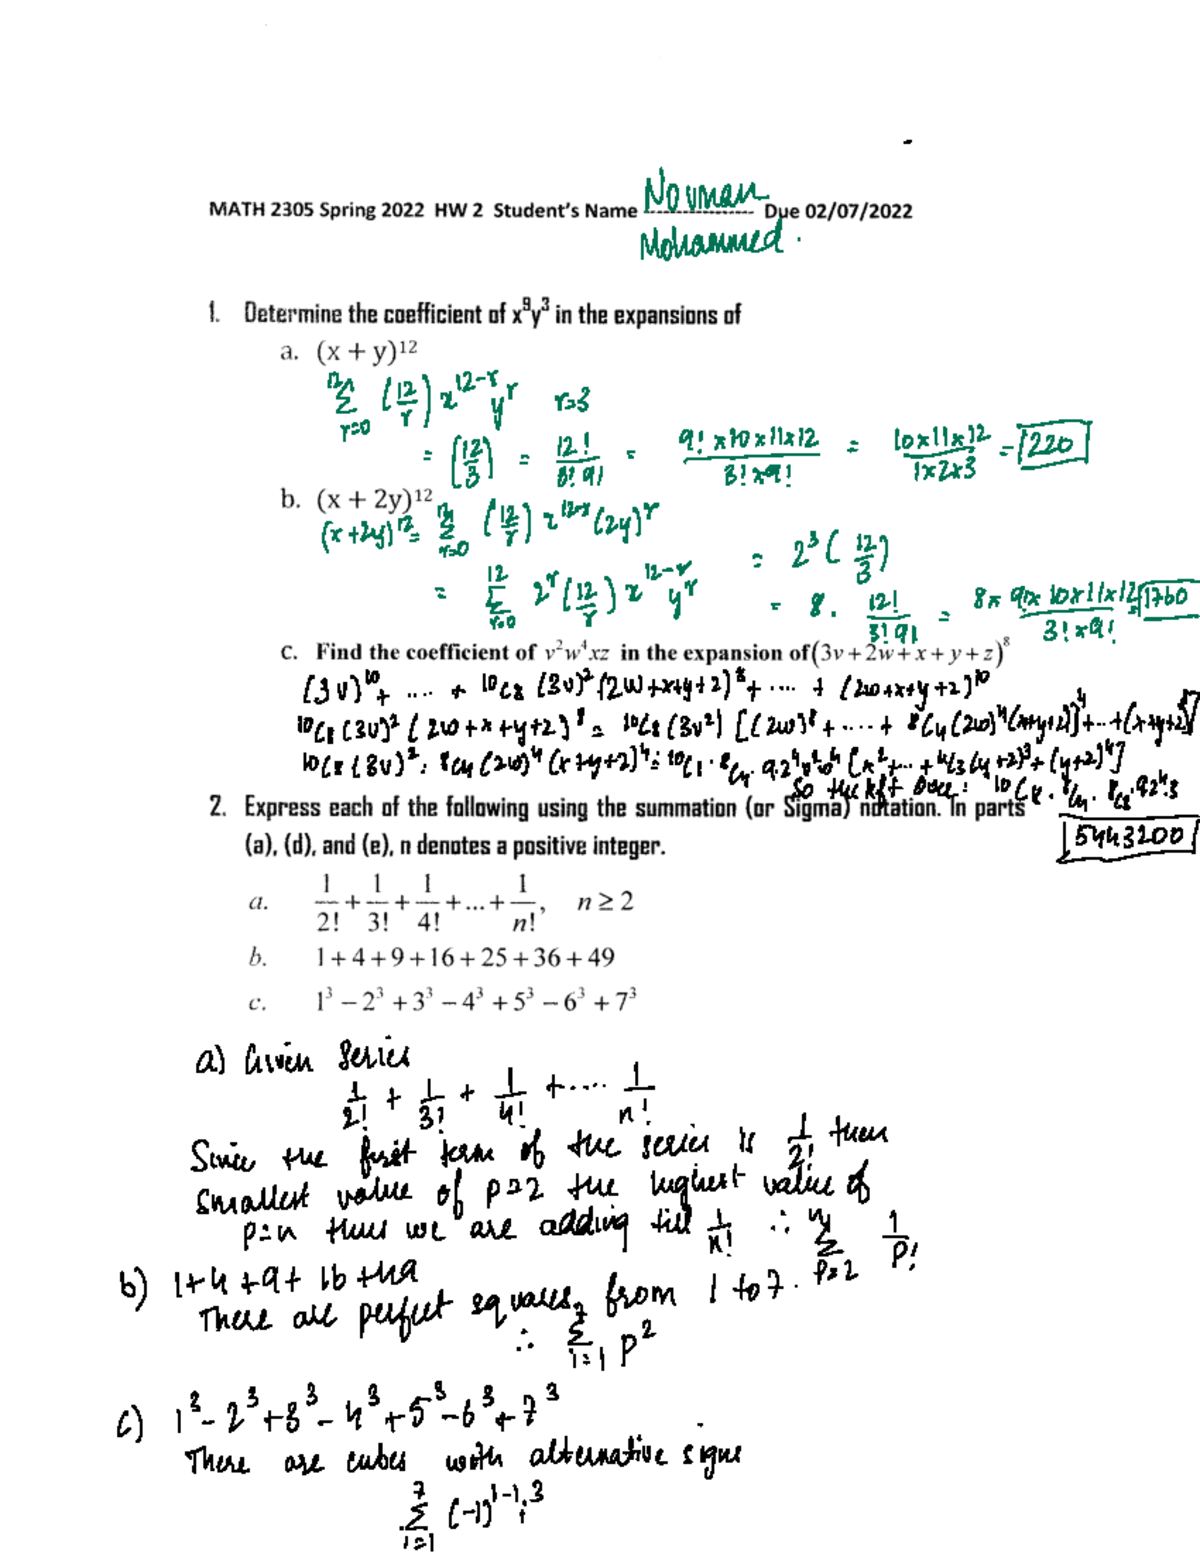 MATH 2305 Spring 2022 HW 2 Student's Name Nouman Due 02/07/2022
Mohammed.
1. Determine the coefficient of x⁹y³ in the expansions of
a. (x + y)¹²
12 Σ r=0 (12/r) x^12-r y^r r=3
= (12/3) = 12!/3! 9! = 9! x 10 x 11 x 12 / 3! x 9! = 10 x 11 x 12 / 1 x 2 x 3 = 220
b. (x + 2y)¹²
(x + 2y)¹² = 12 Σ r=0 (12/r) x^12-r (2y)^r
= 12 Σ r=0 2^r (12/r) x^12-r y^r = 2³ (12/3)
= 8 . 12!/3! 9! = 8 x 9! x 10 x 11 x 12 / 3! x 9! = 1760
c. Find the coefficient of v²w⁴xz in the expansion of (3v + 2w + x + y + z)⁸
(3v)¹⁰ + .... + 10C8 (3v)² (2w + x + y + z)⁸ + .... + (2w + x + y + z)¹⁰
10C8 (3v)² (2w + x + y + z)⁸ = 10C8 (3v²) [(2w)⁸ + .... + 8C4 (2w)⁴ (x + y + z)⁴] + .. + (x + y + z)⁸]
10C8 (3v)² . 8C4 (2w)⁴ (x + y + z)⁴
5443200
2. Express each of the following using the summation (or Sigma) notation. In parts
(a), (d), and (e), n denotes a positive integer.
a. 1/2! + 1/3! + 1/4! + ... + 1/n!, n ≥ 2
b. 1 + 4 + 9 + 16 + 25 + 36 + 49
c. 1³ − 2³ + 3³ − 4³ + 5³ − 6³ + 7³
a) Given Series
1/2! + 1/3! + 1/4! + .... 1/n!
Since the first term of the series is 1/2! then
smallest value of p=2 the highest value of
p=n thus we are adding till 1/n! ∴ n Σ p=2 1/p!
b) 1+4+9+16+49
There are perfect squares from 1 to 7.
∴ 7 Σ i=1 p²
c) 1³ - 2³ + 3³ - 4³ + 5³ - 6³ + 7³
There are cubes with alternative signs
7 Σ i=1 (-1)^i-1 i³